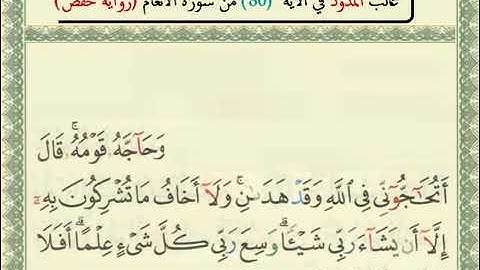 غالب المدود في الآية (80) من سورة الأنعام (رواية حفص)
وَحَآجَّهُۥ قَوْمُهُۥ ۚ قَالَ
أَتُحَـٰٓجُّوٓنِّى فِى ٱللَّهِ وَقَدْ هَدَىٰنِ ۚ وَلَآ أَخَافُ مَا تُشْرِكُونَ بِهِۦٓ
إِلَّآ أَن يَشَآءَ رَبِّى شَيْـًٔا ۗ وَسِعَ رَبِّى كُلَّ شَىْءٍ عِلْمًا ۗ أَفَلَا